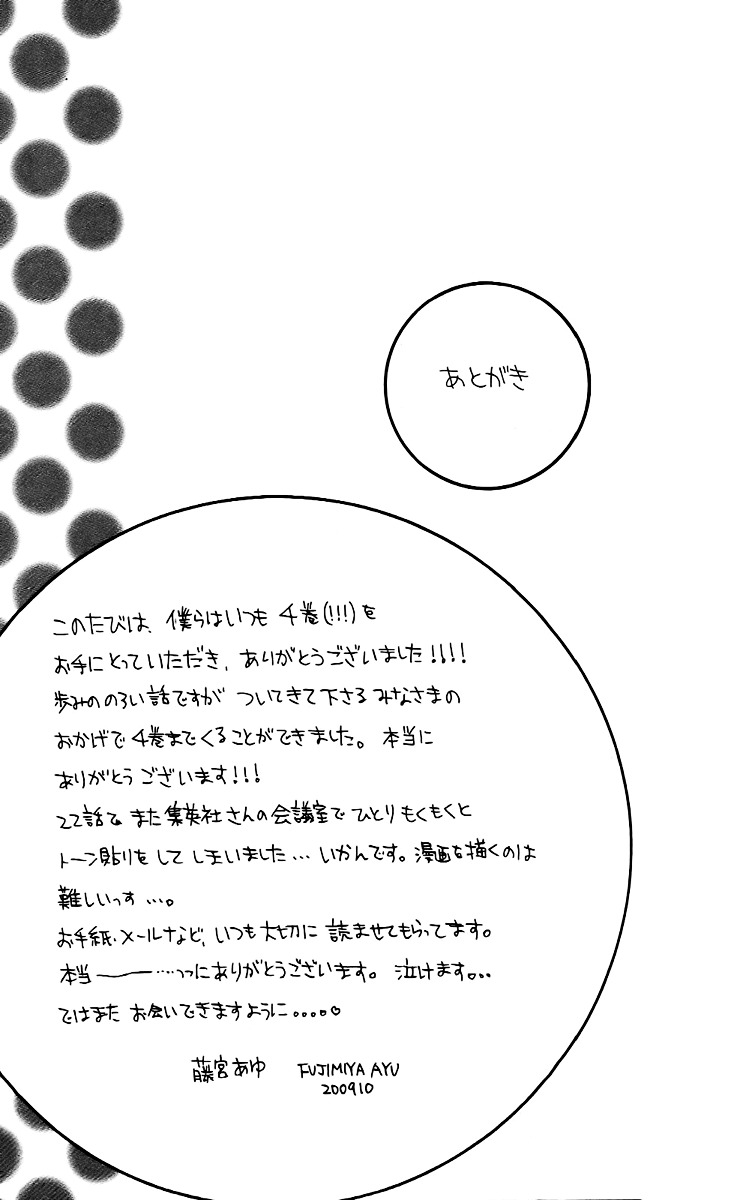 あとがき
このたびは、僕らはいつも 4巻(!!!)を
お手にとっていただき、ありがとうございました!!!!
歩みののろい話ですが ついてきて下さるみなさまの
おかげで4巻までくることができました。 本当に
ありがとうございます!!!
22話で また集英社さんの会議室でひとりもくもくと
トーン貼りをして しまいました… いかんです。漫画を描くのは
難しいっす …。
お手紙・メールなど、いつも大切に 読ませてもらってます。
本当――…っっにありがとうございます。 泣けます。。。
ではまた お会いできますように。。。。♡
藤宮あゆ FUJIMIYA AYU
200910